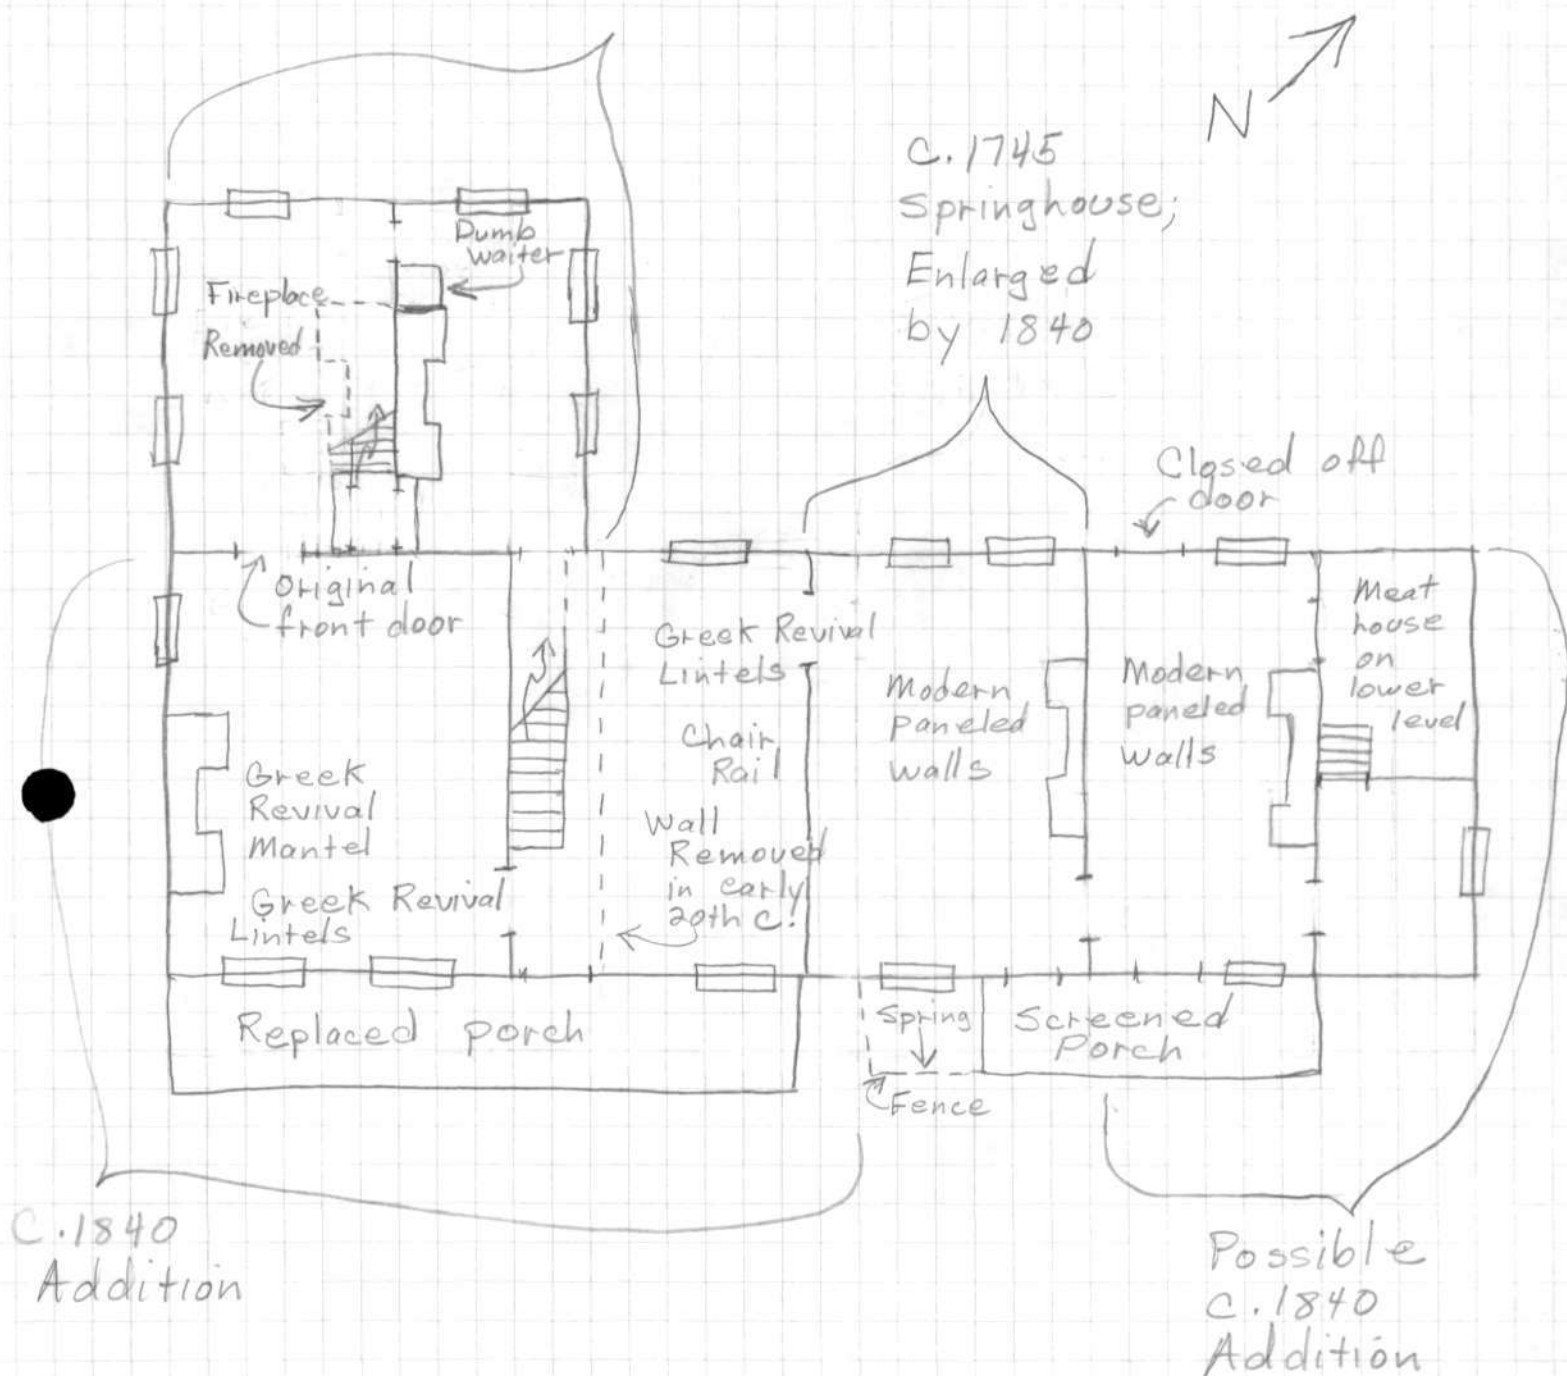 N
C. 1745
Springhouse;
Enlarged
by 1840
Dumb
waiter
Fireplace
Removed
Closed off
door
Original
front door
Greek Revival
Lintels
Chair
Rail
Wall
Removed
in early
20th C.
Modern
paneled
walls
Modern
paneled
walls
Meat
house
on
lower
level
Greek
Revival
Mantel
Greek Revival
Lintels
Replaced porch
Spring
Fence
Screened
Porch
C. 1840
Addition
Possible
C. 1840
Addition